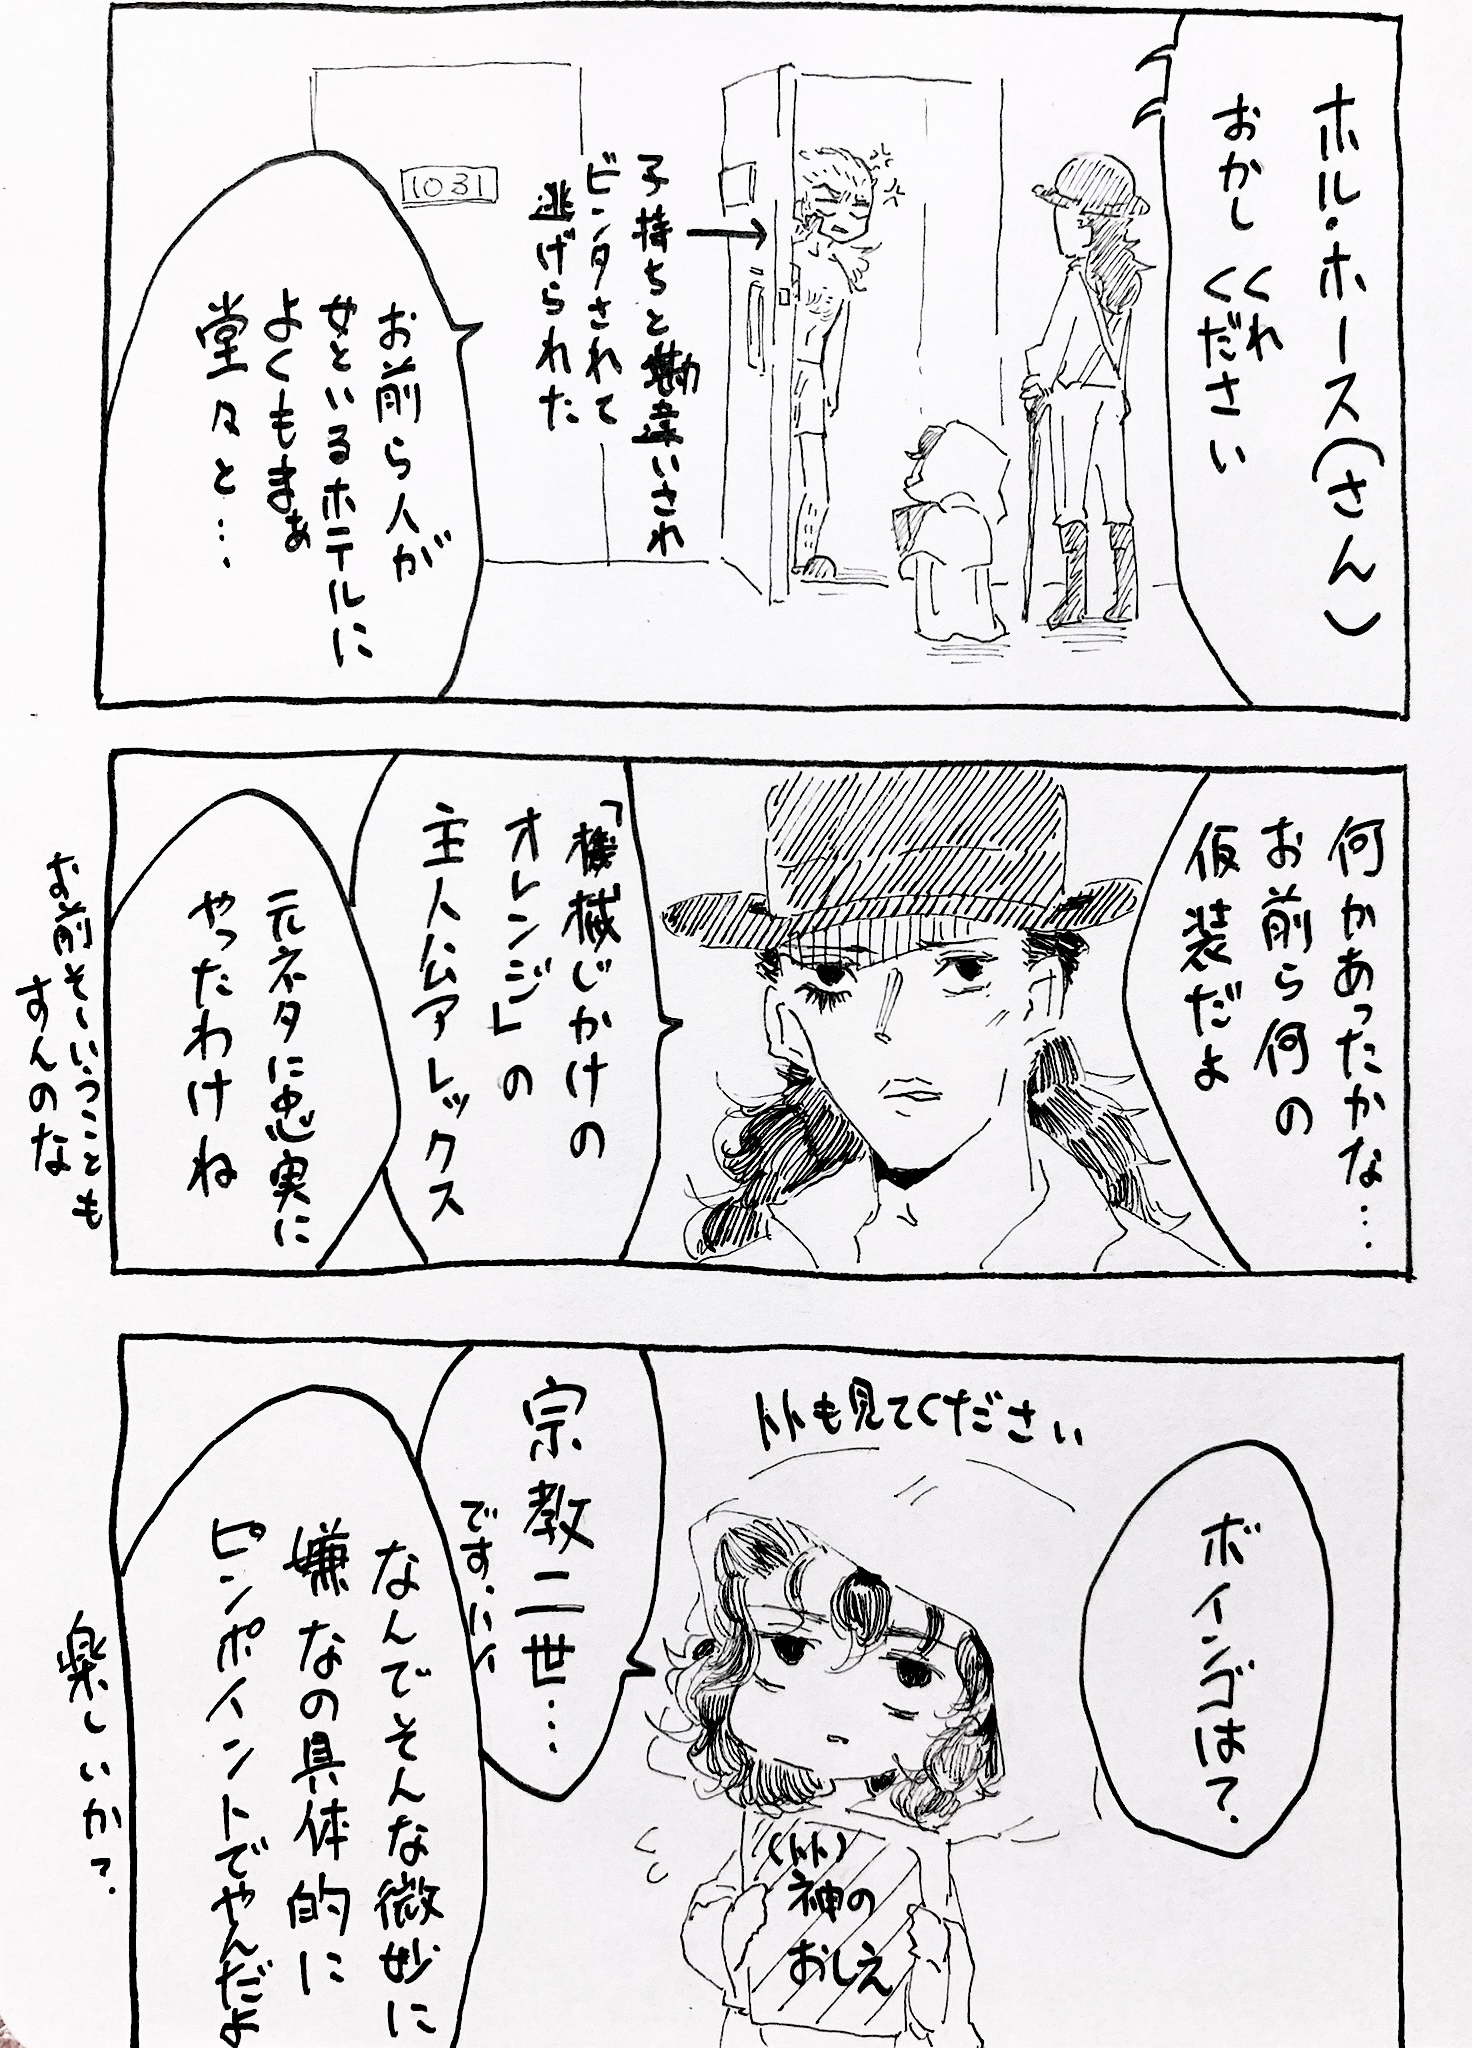 ホル・ホース(さん)
おかし
くれ
ください
子持ちと勘違いされ
ビンタされて
逃げられた
1031
お前ら人が
女といるホテルに
よくもまぁ
堂々と…
何かあったかな…
お前ら何の
仮装だよ
「機械じかけの
オレンジ」の
主人公アレックス
元ネタに忠実に
やったわけね
お前そーいうことも
すんのな
ボインゴは?
トトも見てください
宗教二世…
です、ハイ
(トト)
神の
おしえ
なんでそんな微妙に
嫌なの具体的に
ピンポイントでやんだよ
楽しいか?